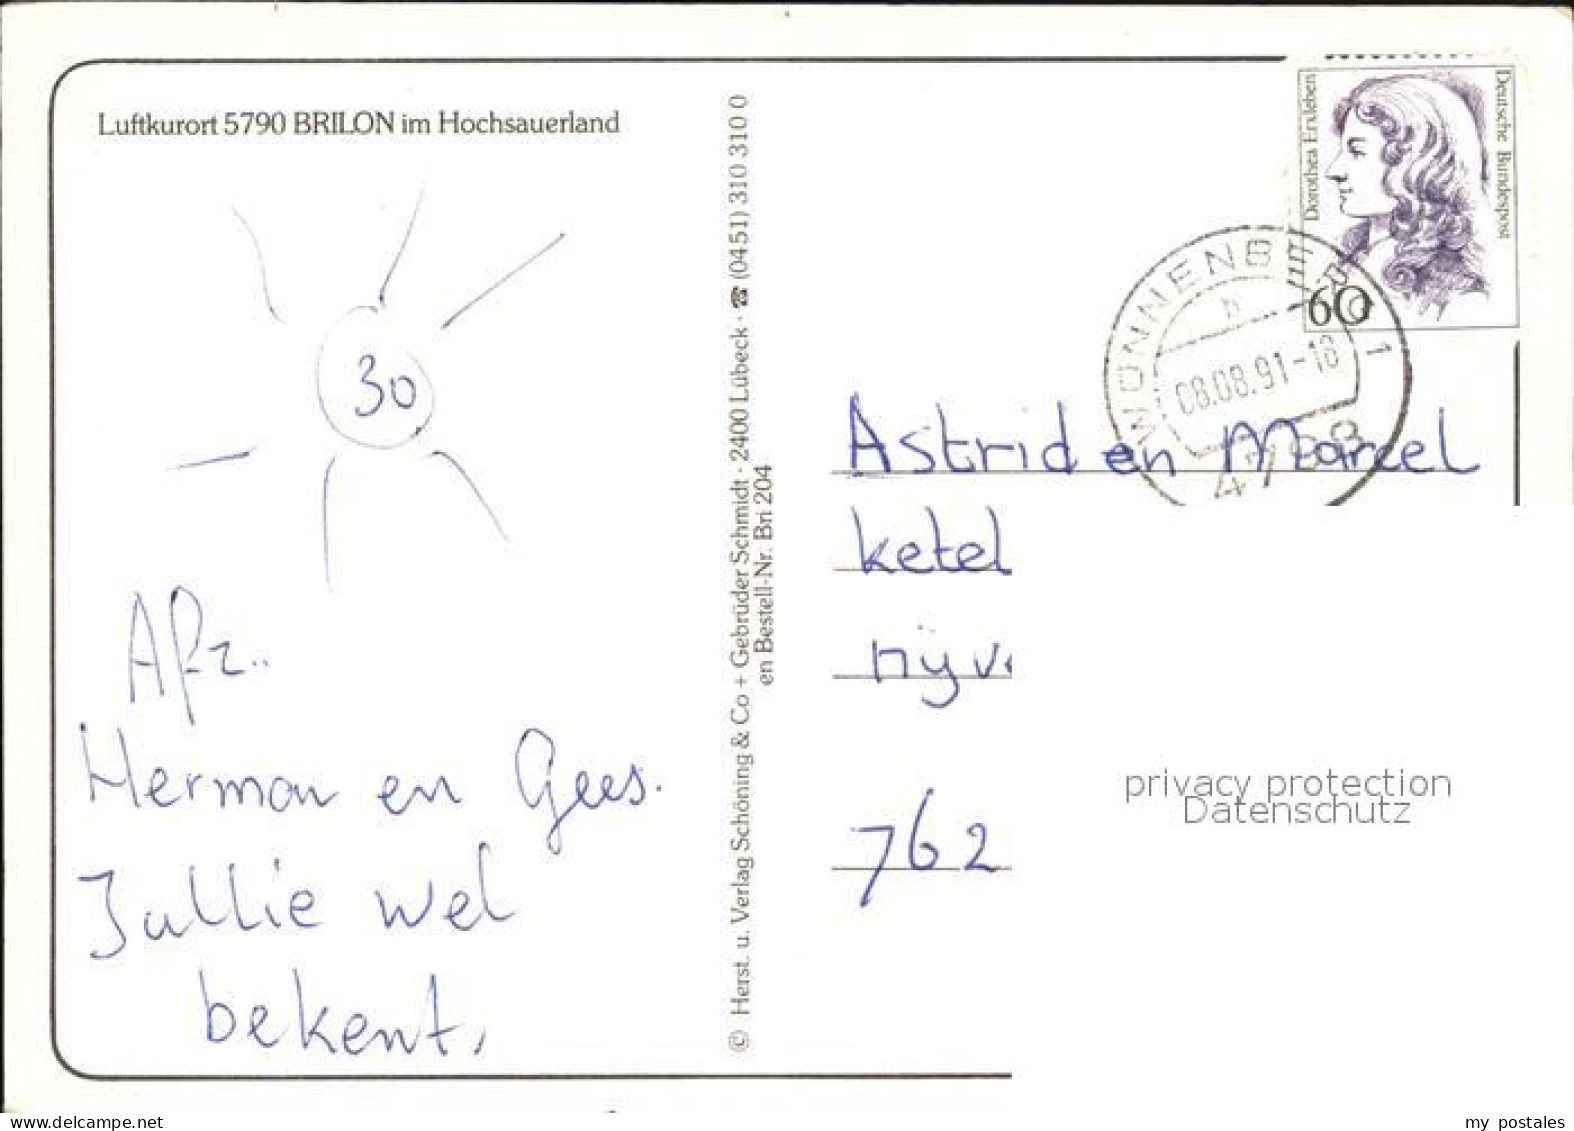 Luftkurort 5790 BRILON im Hochsauerland
30
Afz..
Herman en Gees.
Jullie wel
bekent,
© Herst. u. Verlag Schöning & Co + Gebrüder Schmidt · 2400 Lübeck · ☎ (0451) 310 310 0
en Bestell-Nr. Bri 204
Dorothea Erxleben
Deutsche Bundespost
60
WÜNNENBERG 1
b
08.08.91-18
4798
Astrid en Marcel
ketel
nijv
762
privacy protection
Datenschutz
www.delcampe.net
my postales